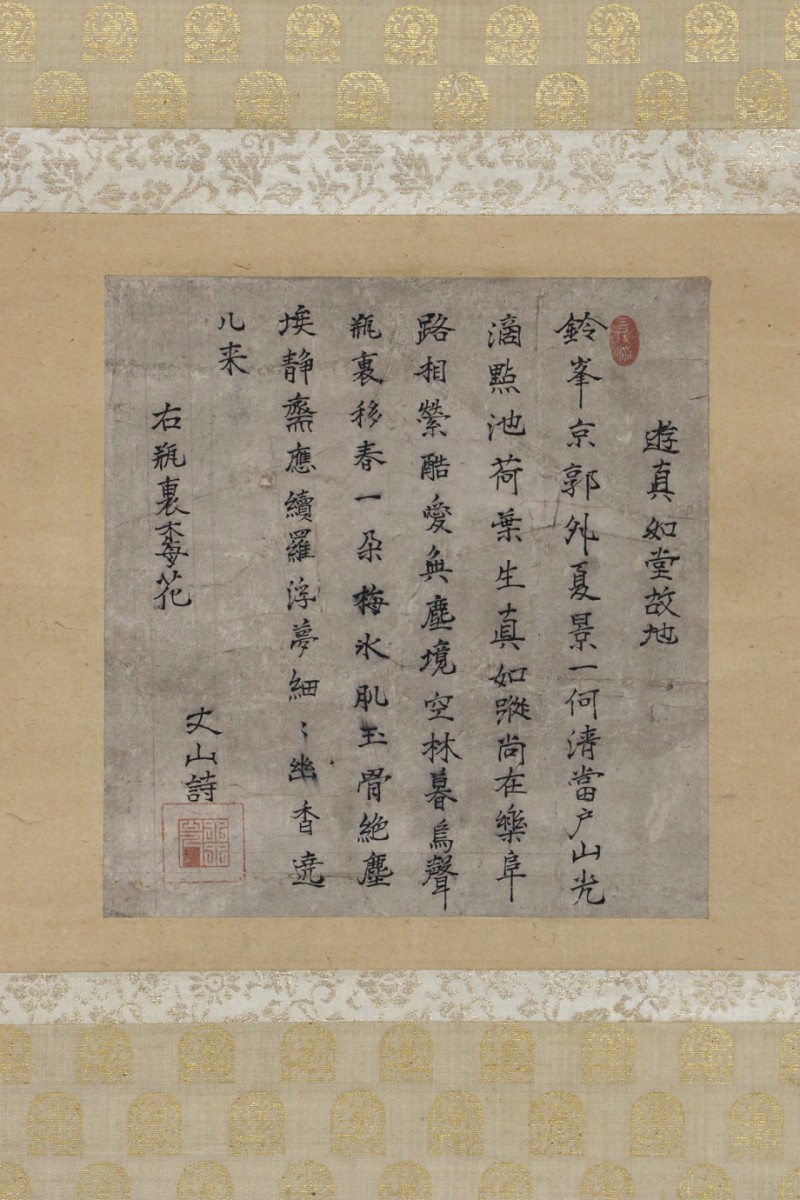 遊真如堂故地
鈴峯京郭外夏景一何淸當戶山光
滴點池荷葉生真如蹤尚在樂阜
路相縈酷愛無塵境空林暮鳥聲
瓶裏移春一朶梅氷肌玉骨絶塵
埃静齋應續羅浮夢細〻幽香遶
几来
右瓶裏梅花
丈山詩